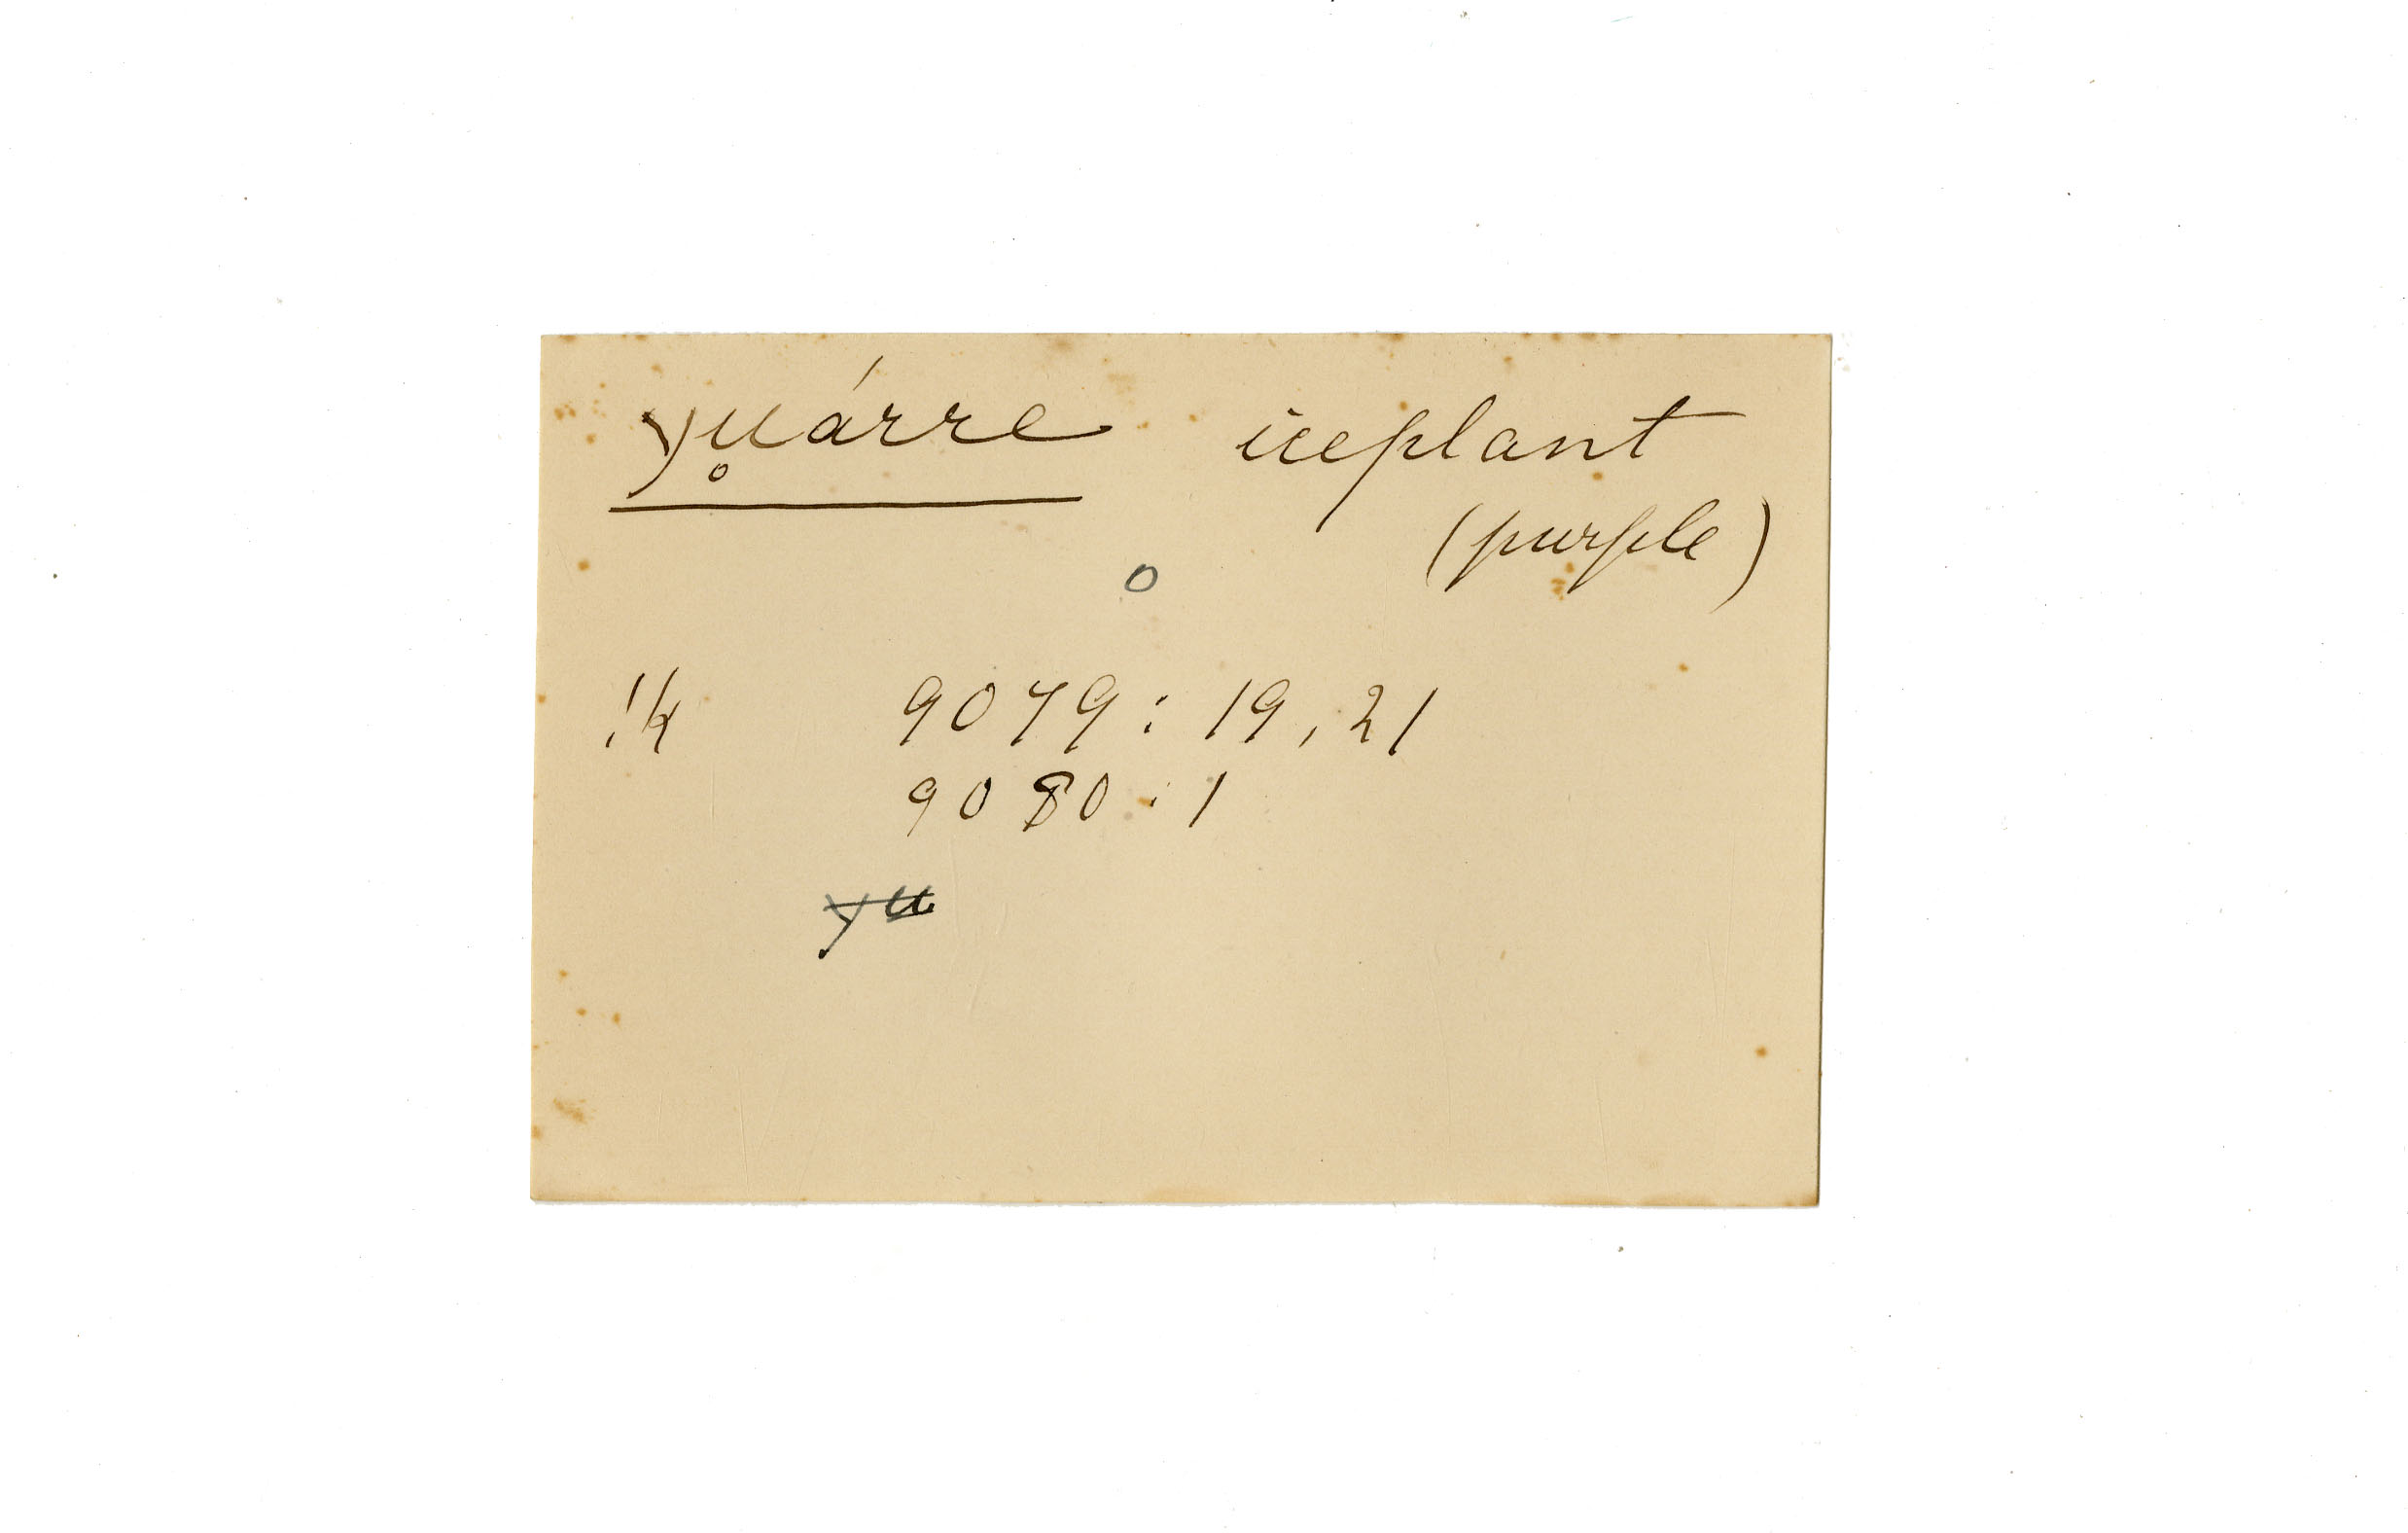 yu̥árre iceplant
(purple)
o
!k 9079 : 19, 21
9080 : 1
yu